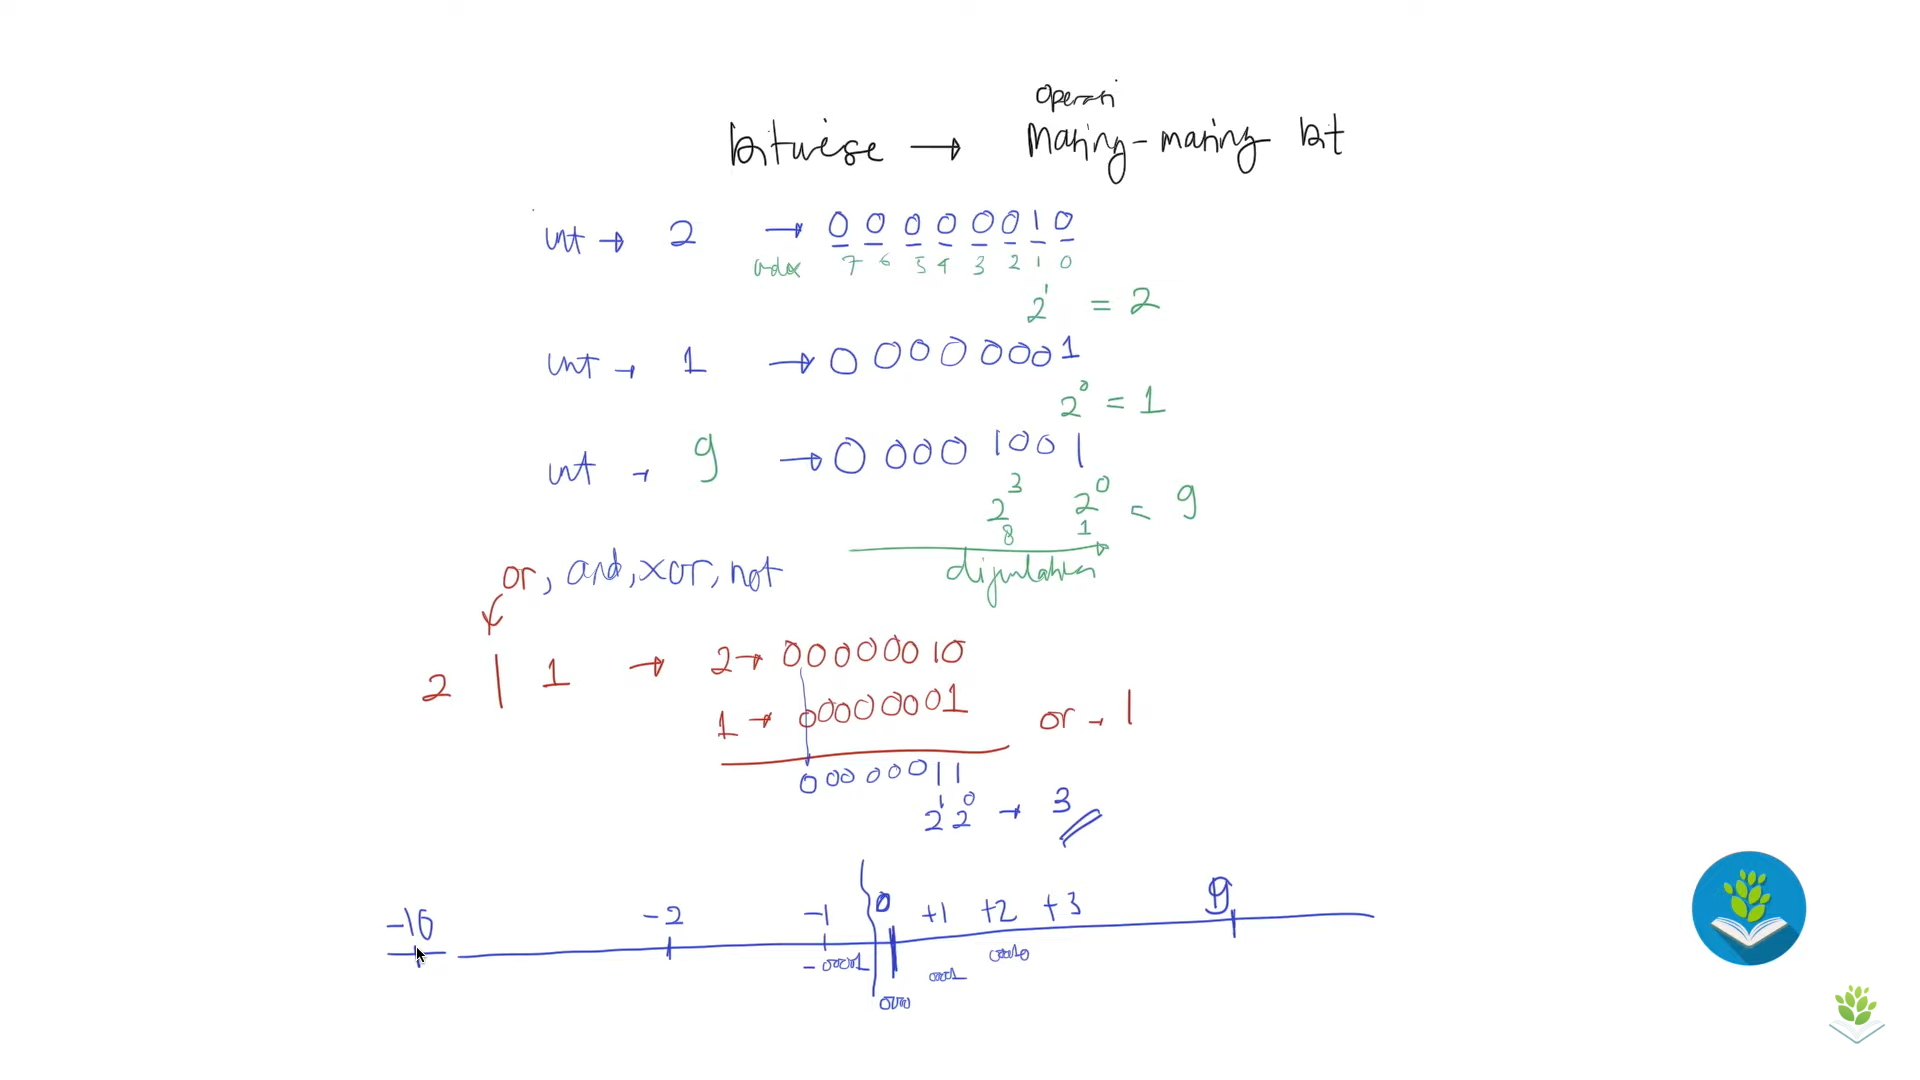 operasi
bitwise → Masing-masing bit
int → 2 → 00000010
index 7 6 5 4 3 2 1 0
2¹ = 2
int → 1 → 00000001
2⁰ = 1
int → 9 → 00001001
2³ 2⁰ = 9
8 1
dijumlahkan
or, and, xor, not
2 | 1 → 2 → 00000010
1 → 00000001 or → 1
00000011
2¹ 2⁰ → 3
-10 -2 -1 0 +1 +2 +3 9
-0001 0001 0010
000